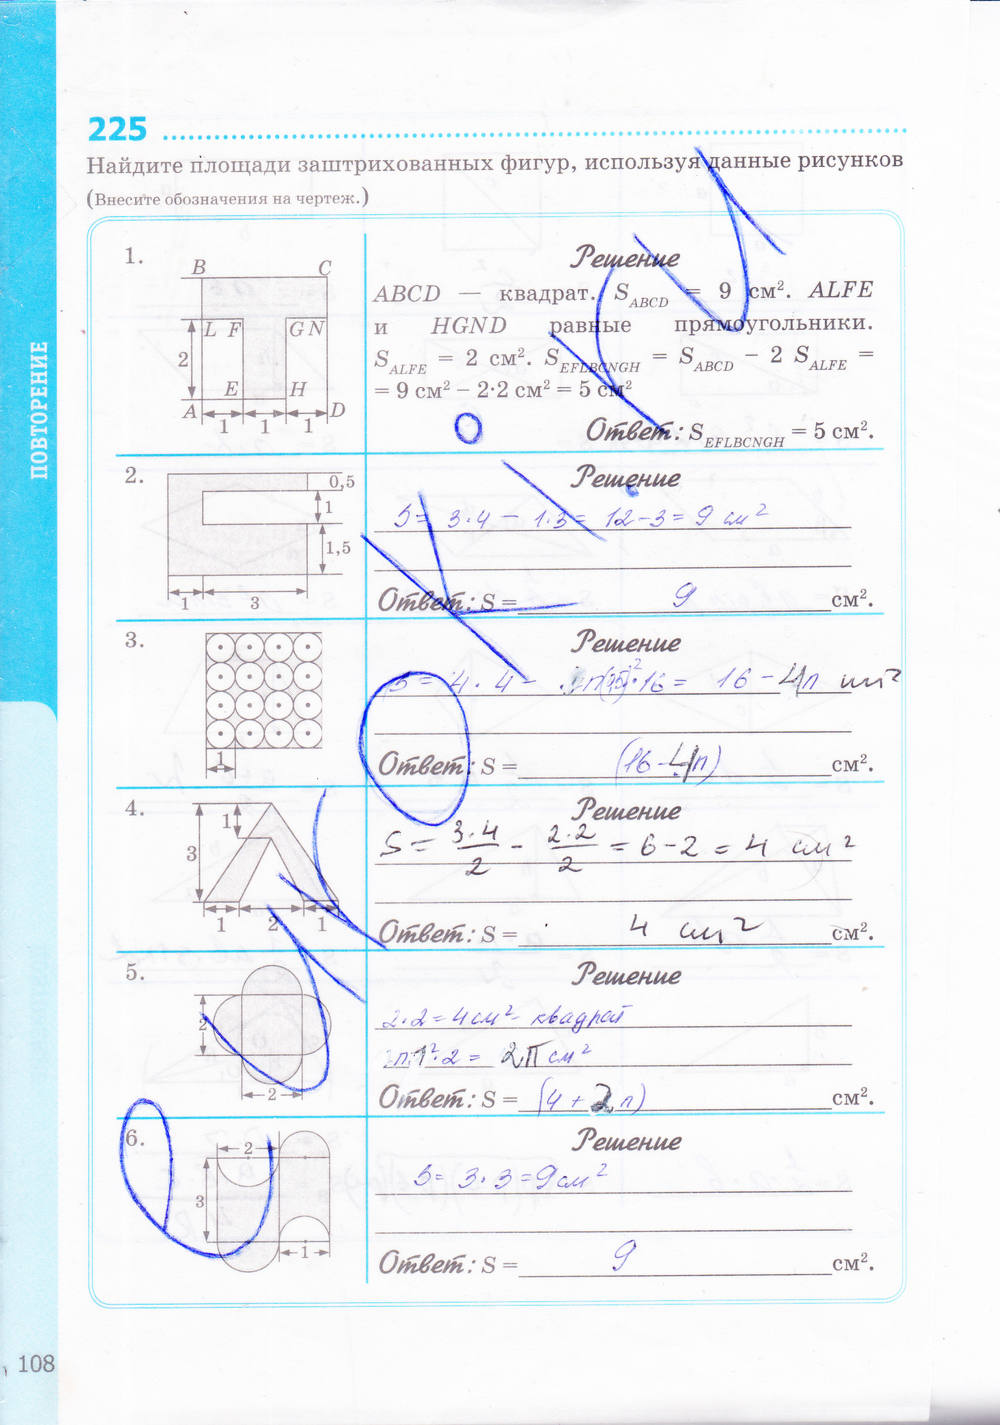 ПОВТОРЕНИЕ
225
Найдите площади заштрихованных фигур, используя данные рисунков
(Внесите обозначения на чертеж.)
1.
B C
L F G N
2
E H
A D
1 1 1
Решение
ABCD — квадрат. S ABCD = 9 см². ALFE
и HGND равные прямоугольники.
S ALFE = 2 см². S EFLBCNGH = S ABCD – 2 S ALFE =
= 9 см² – 2·2 см² = 5 см²
Ответ: S EFLBCNGH = 5 см².
2.
0,5
1
1,5
1 3
Решение
S = 3·4 – 1·3 = 12 – 3 = 9 см²
Ответ: S = 9 см².
3.
1
Решение
S = 4·4 – π(0,5)²·16 = 16 – 4π см²
Ответ: S = (16 – 4π) см².
4.
1
3
1 2 1
Решение
S = 3·4/2 – 2·2/2 = 6 – 2 = 4 см²
Ответ: S = 4 см² см².
5.
2
2
Решение
2·2 = 4 см² – квадрат
π1²·2 = 2π см²
Ответ: S = (4 + 2π) см².
6.
2
3
1
Решение
S = 3·3 = 9 см²
Ответ: S = 9 см².
108